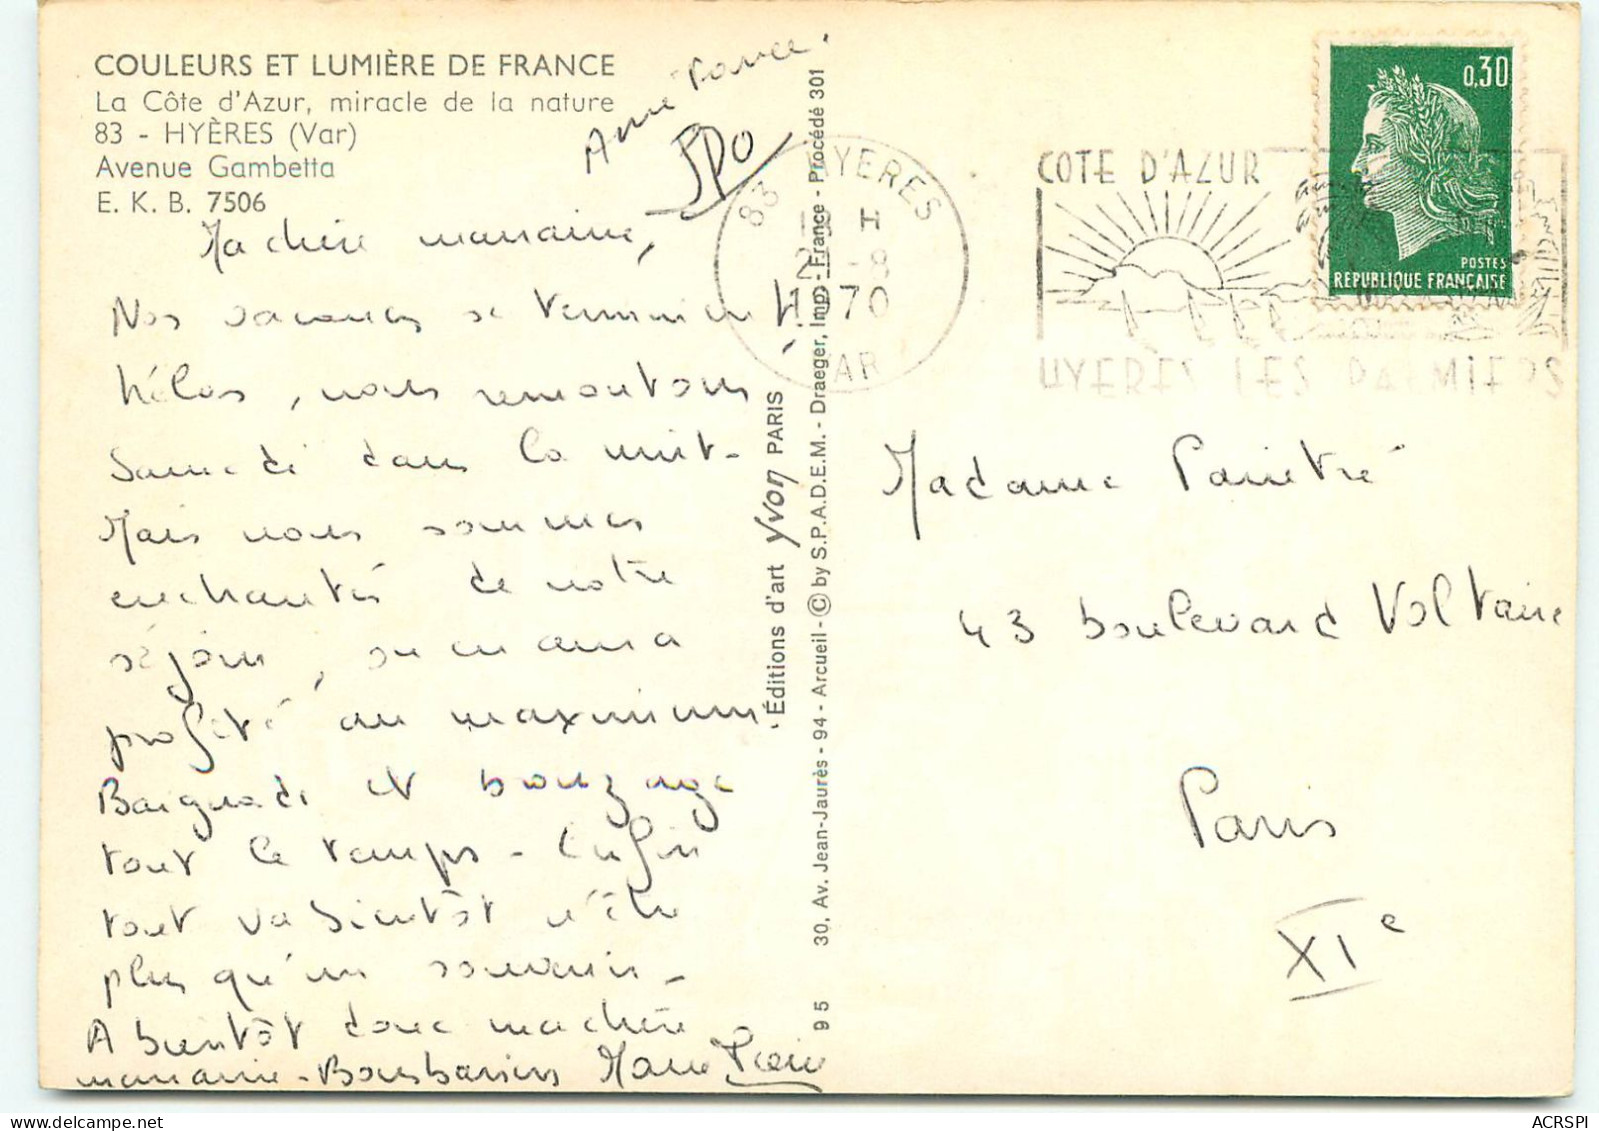 COULEURS ET LUMIÈRE DE FRANCE
La Côte d'Azur, miracle de la nature
83 - HYÈRES (Var)
Avenue Gambetta
E. K. B. 7506
Ma chère marraine,
Nos vacances se terminent
hélas, nous remontons
Samedi dans la nuit-
Mais nous sommes
enchantés de notre
séjour, on en aura
profité au maximum.
Baignade et bronzage
tout le temps - Enfin
tout va bientôt n'être
plus qu'un souvenir -
A bientôt donc ma chère
marraine - Bons baisers Marie
France.
Éditions d'art Yvon PARIS
30, Av. Jean-Jaurès - 94 - Arcueil - © by S.P.A.D.E.M. - Draeger, Imp. - France - Procédé 301
95
83 HYERES
H
-8
1970
VAR
COTE D'AZUR
HYERES LES PALMIERS
0,30
POSTES
REPUBLIQUE FRANÇAISE
Madame Parietré
43 boulevard Voltaire
Paris
XIe
ACRSPI